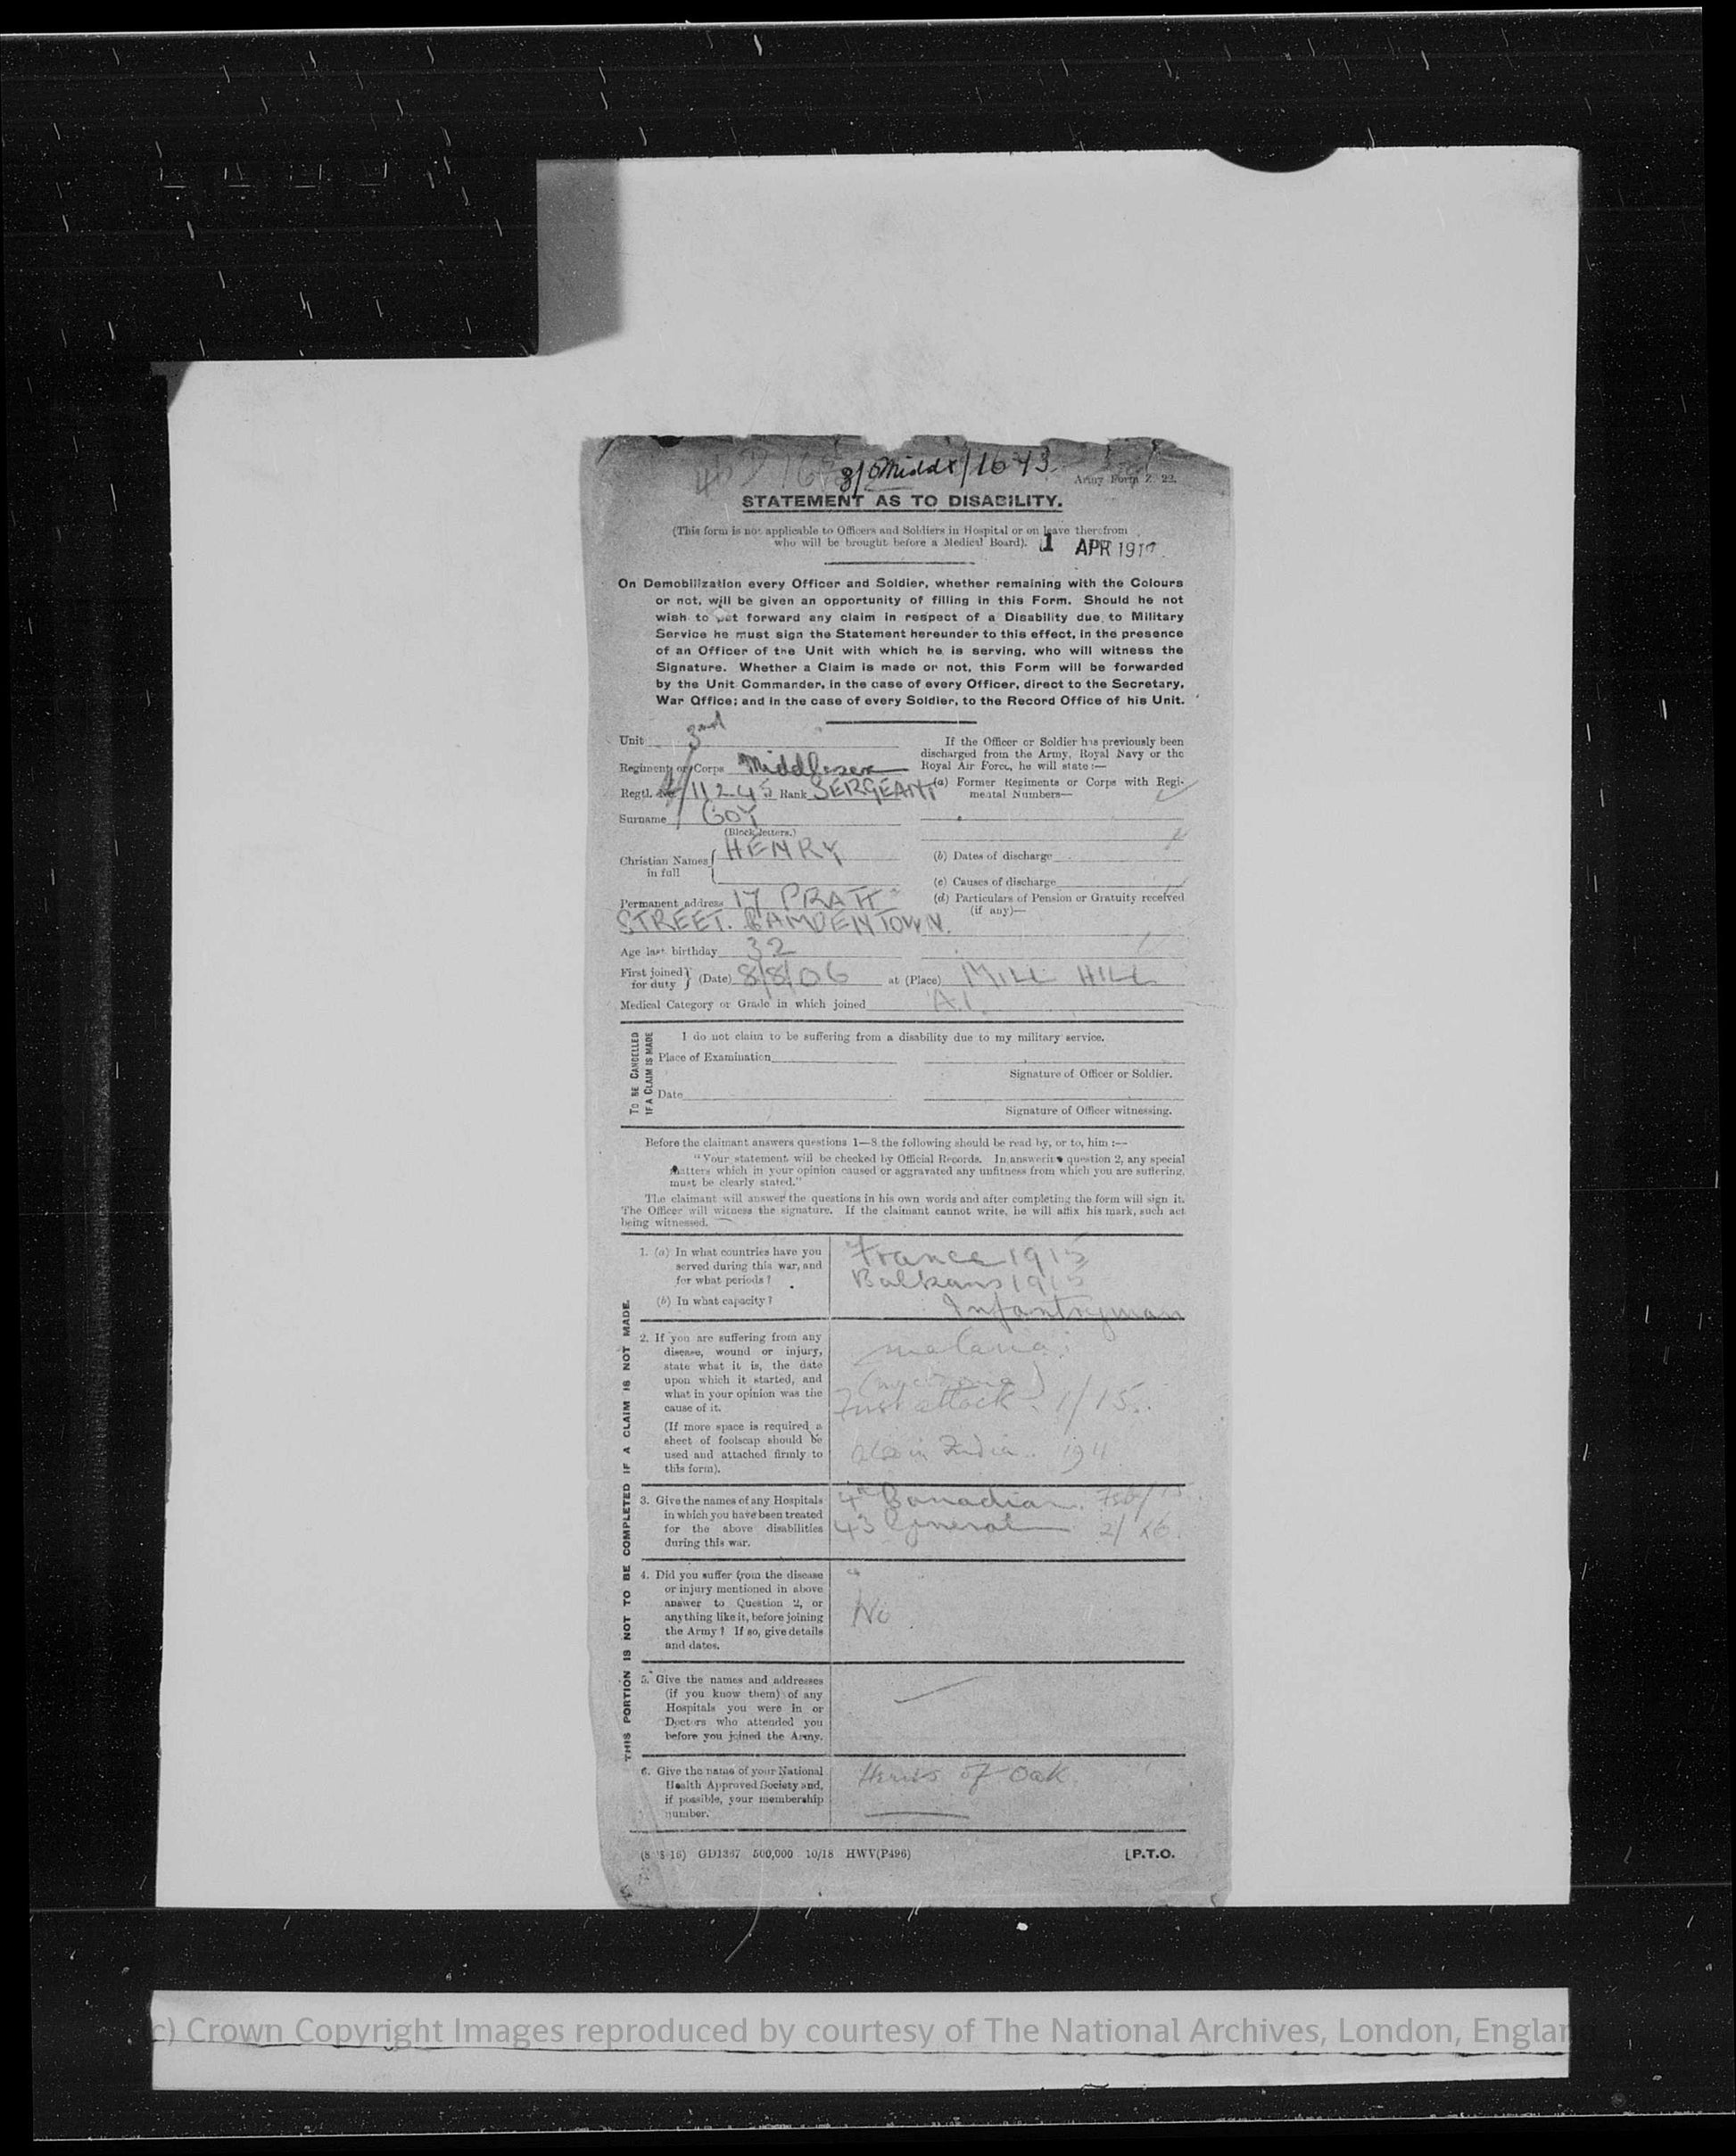 8/Middx/1643.
Army Form Z. 22.
STATEMENT AS TO DISABILITY.
(This form is not applicable to Officers and Soldiers in Hospital or on leave therefrom
who will be brought before a Medical Board).
1 APR 191
On Demobilization every Officer and Soldier, whether remaining with the Colours
or not, will be given an opportunity of filling in this Form. Should he not
wish to put forward any claim in respect of a Disability due to Military
Service he must sign the Statement hereunder to this effect, in the presence
of an Officer of the Unit with which he is serving, who will witness the
Signature. Whether a Claim is made or not, this Form will be forwarded
by the Unit Commander, in the case of every Officer, direct to the Secretary,
War Office; and in the case of every Soldier, to the Record Office of his Unit.
Unit 3rd
Regiment or Corps Middlesex
Regtl. No. 11245 Rank SERGEANT
Surname GOY
(Block letters.)
Christian Names in full HENRY
Permanent address 17 PRATT
STREET. CAMDEN TOWN.
Age last birthday 32
If the Officer or Soldier has previously been
discharged from the Army, Royal Navy or the
Royal Air Force, he will state :—
(a) Former Regiments or Corps with Regi-
mental Numbers—
(b) Dates of discharge
(c) Causes of discharge
(d) Particulars of Pension or Gratuity received
(if any)—
First joined for duty } (Date) 8/8/06 at (Place) MILL HILL
Medical Category or Grade in which joined A.1.
TO BE CANCELLED
IF A CLAIM IS MADE
I do not claim to be suffering from a disability due to my military service.
Place of Examination
Signature of Officer or Soldier.
Date
Signature of Officer witnessing.
Before the claimant answers questions 1—8 the following should be read by, or to, him :—
"Your statement will be checked by Official Records. In answering question 2, any special
matters which in your opinion caused or aggravated any unfitness from which you are suffering,
must be clearly stated."
The claimant will answer the questions in his own words and after completing the form will sign it.
The Officer will witness the signature. If the claimant cannot write, he will affix his mark, such act
being witnessed.
THIS PORTION IS NOT TO BE COMPLETED IF A CLAIM IS NOT MADE.
1. (a) In what countries have you
served during this war, and
for what periods ?
(b) In what capacity ?
France 1915
Balkans 1915
Infantryman
2. If you are suffering from any
disease, wound or injury,
state what it is, the date
upon which it started, and
what in your opinion was the
cause of it.
(If more space is required a
sheet of foolscap should be
used and attached firmly to
this form).
malaria
First attack - 1/15.
also in India. 1911
3. Give the names of any Hospitals
in which you have been treated
for the above disabilities
during this war.
4th Canadian. Feb/
43 General 2/16.
4. Did you suffer from the disease
or injury mentioned in above
answer to Question 2, or
anything like it, before joining
the Army ? If so, give details
and dates.
No
5. Give the names and addresses
(if you know them) of any
Hospitals you were in or
Doctors who attended you
before you joined the Army.
6. Give the name of your National
Health Approved Society and,
if possible, your membership
number.
Hearts of Oak
GD1367 500,000 10/18 HWV(P496)
[P.T.O.
c) Crown Copyright Images reproduced by courtesy of The National Archives, London, England